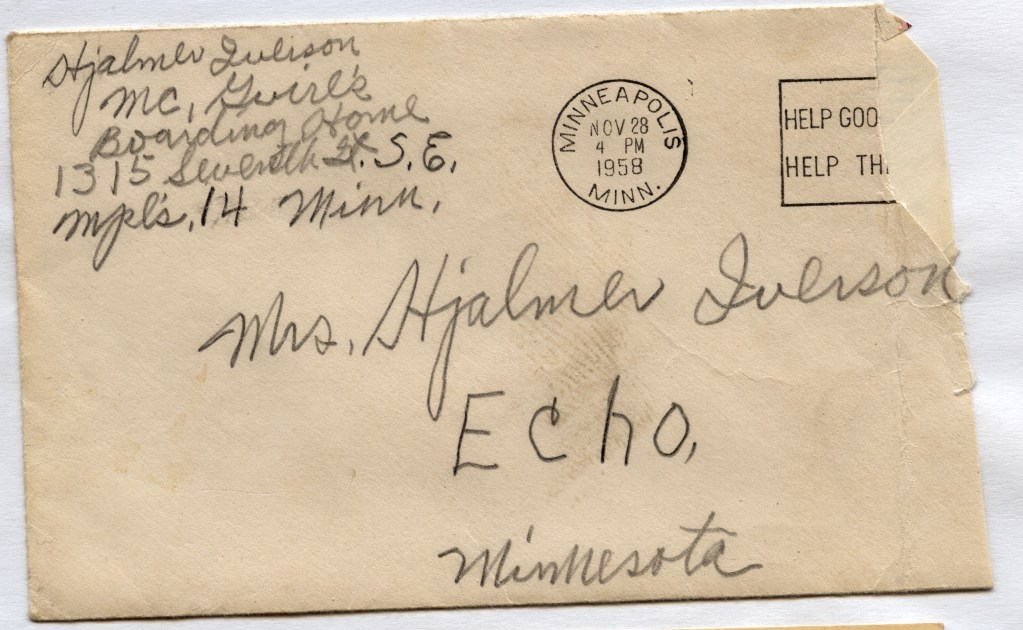 Hjalmer Iverson
MC, Guire's
Boarding Home
1315 Seventh St. S. E.
Mpl's, 14 Minn.
MINNEAPOLIS
NOV 28
4 PM
1958
MINN.
HELP GOO
HELP TH
Mrs. Hjalmer Iverson
Echo,
Minnesota